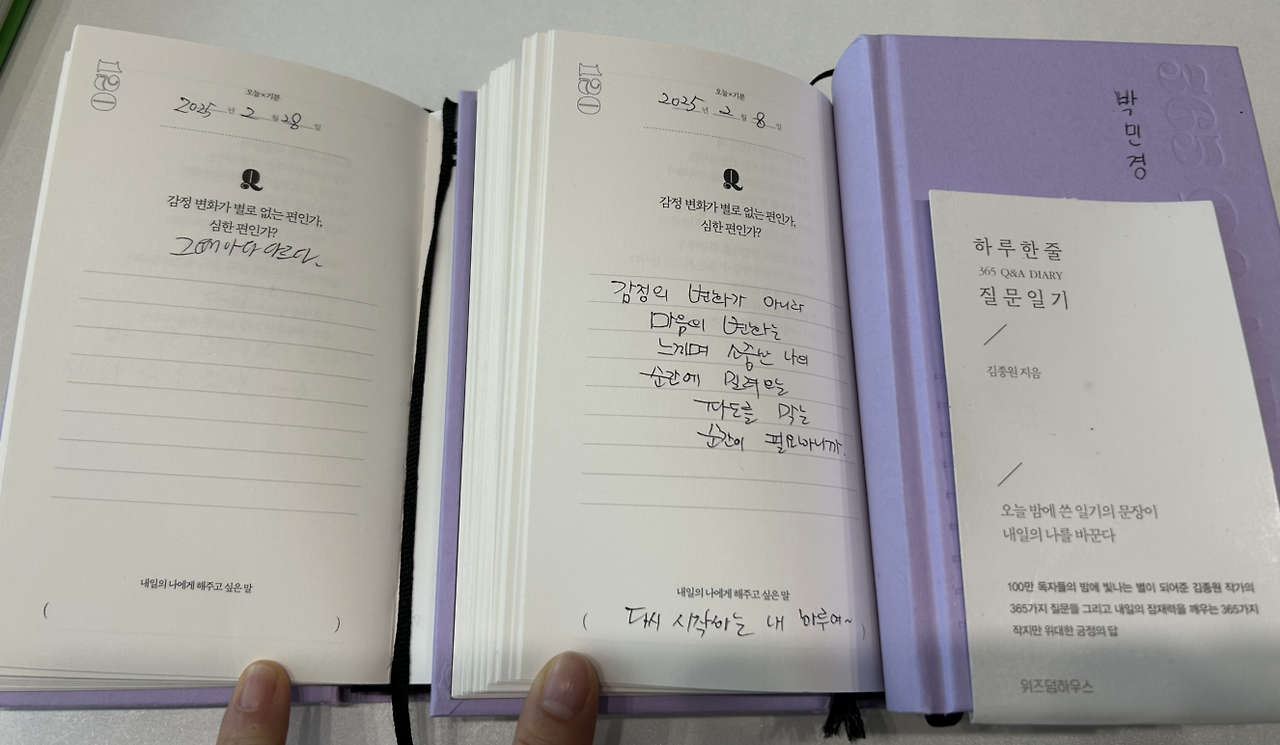 120
오늘×기분
2025년 2월 28일
Q
감정 변화가 별로 없는 편인가,
심한 편인가?
그때마다 다르다.
내일의 나에게 해주고 싶은 말
( )
120
오늘×기분
2025년 2월 8일
Q
감정 변화가 별로 없는 편인가,
심한 편인가?
감정의 변화가 아니라
마음의 변화는
느끼며 소중한 나의
순간에 밀려오는
파도를 막는
순간이 필요하니까.
내일의 나에게 해주고 싶은 말
( 다시 시작하는 내 하루여~ )
박민경
하루 한 줄
365 Q&A DIARY
질문 일기
김종원 지음
오늘 밤에 쓴 일기의 문장이
내일의 나를 바꾼다
100만 독자들의 밤에 빛나는 별이 되어준 김종원 작가의
365가지 질문들 그리고 내일의 잠재력을 깨우는 365가지
작지만 위대한 긍정의 답
위즈덤하우스